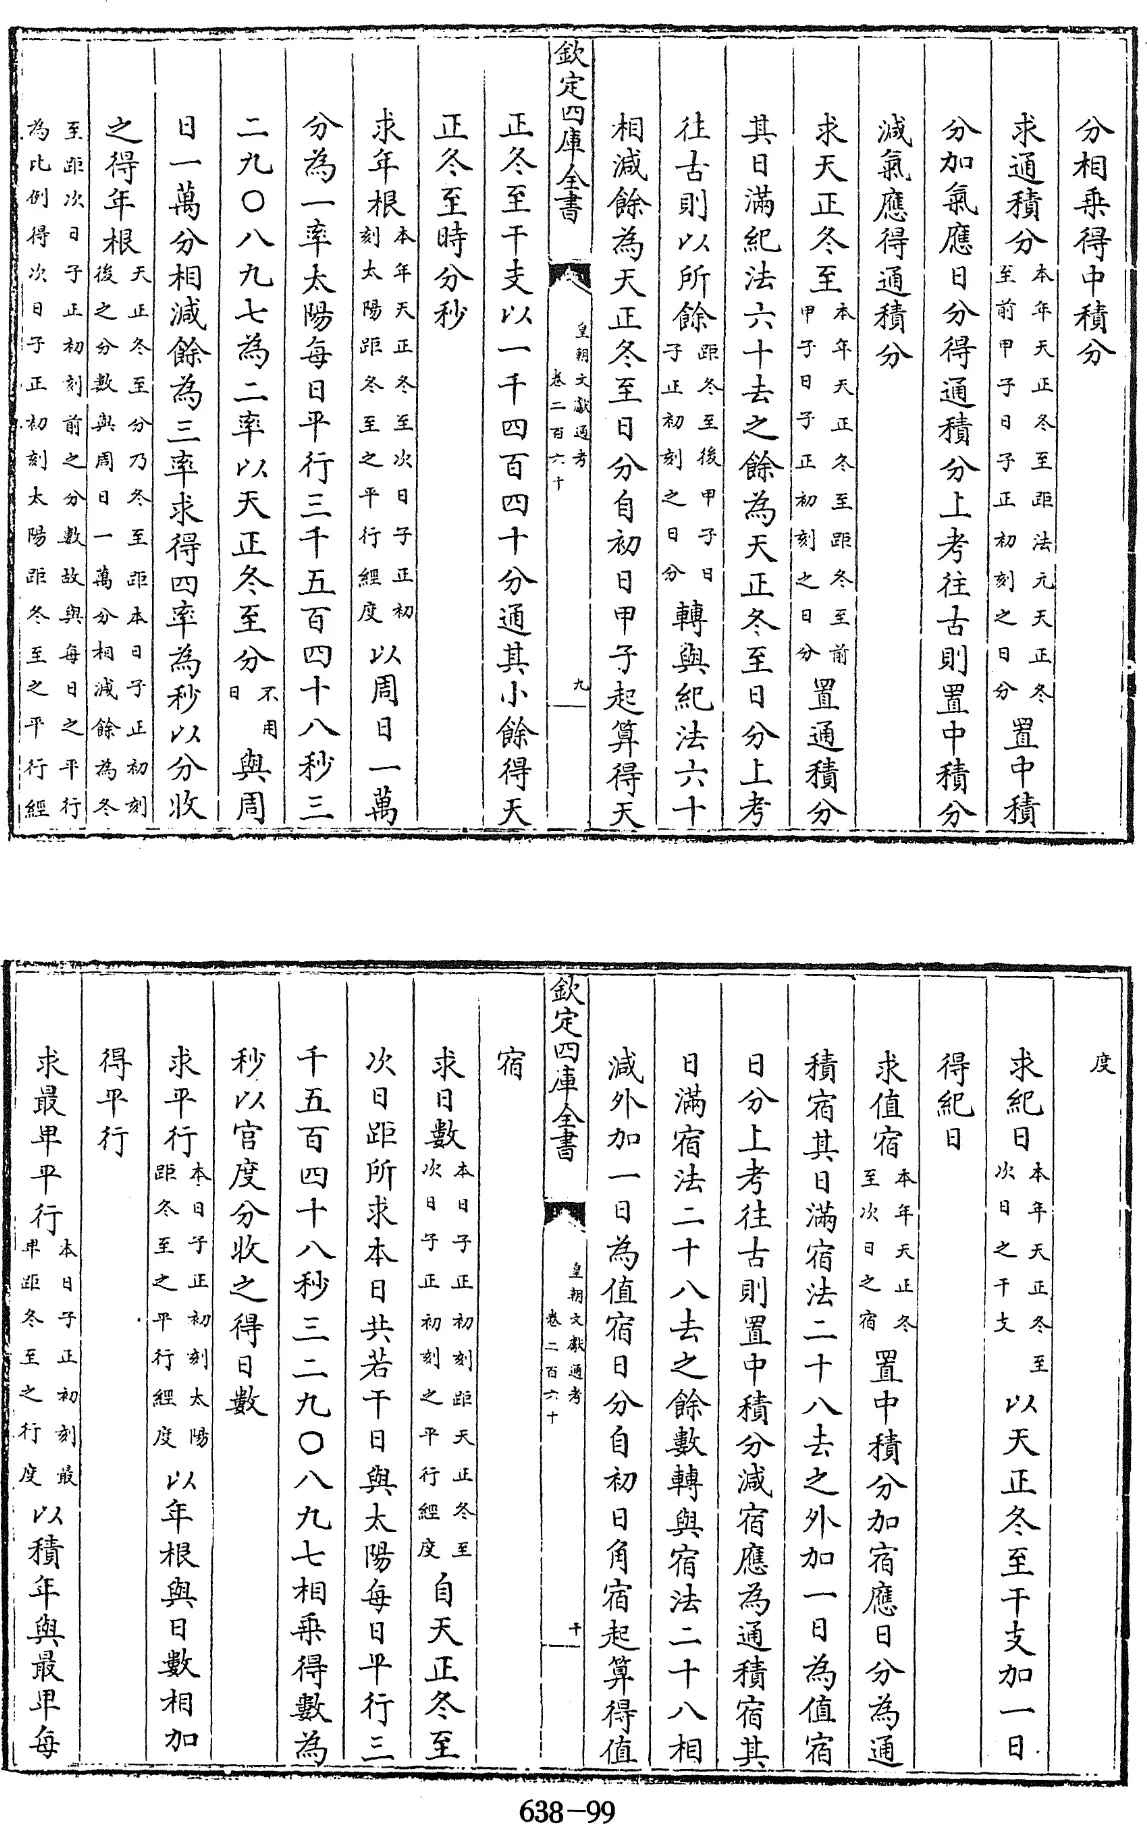 分相乗得中積分
求通積分本年天正冬至距法元天正冬至前甲子日子正初刻之日分置中積
分加氣應日分得通積分上考往古則置中積分
減氣應得通積分
求天正冬至本年天正冬至距冬至前甲子日子正初刻之日分置通積分
其日滿紀法六十去之餘為天正冬至日分上考
往古則以所餘距冬至後甲子日子正初刻之日分轉與紀法六十
相減餘為天正冬至日分自初日甲子起算得天
欽定四庫全書
皇朝文獻通考
卷二百六十
九
正冬至干支以一千四百四十分通其小餘得天
正冬至時分秒
求年根本年天正冬至次日子正初刻太陽距冬至之平行經度以周日一萬
分為一率太陽每日平行三千五百四十八秒三
二九〇八九七為二率以天正冬至分不用日與周
日一萬分相減餘為三率求得四率為秒以分收
之得年根天正冬至分乃冬至距本日子正初刻後之分數與周日一萬分相減餘為冬
至距次日子正初刻前之分數故與每日之平行為比例得次日子正初刻太陽距冬至之平行經
度
求紀日本年天正冬至次日之干支以天正冬至干支加一日
得紀日
求值宿本年天正冬至次日之宿置中積分加宿應日分為通
積宿其日滿宿法二十八去之外加一日為值宿
日分上考往古則置中積分減宿應為通積宿其
日滿宿法二十八去之餘數轉與宿法二十八相
減外加一日為值宿日分自初日角宿起算得值
欽定四庫全書
皇朝文獻通考
卷二百六十
十
宿
求日數本日子正初刻距天正冬至次日子正初刻之平行經度自天正冬至
次日距所求本日共若干日與太陽每日平行三
千五百四十八秒三二九〇八九七相乗得數為
秒以宫度分收之得日數
求平行本日子正初刻太陽距冬至之平行經度以年根與日數相加
得平行
求最卑平行本日子正初刻最卑距冬至之行度以積年與最卑每
638-99